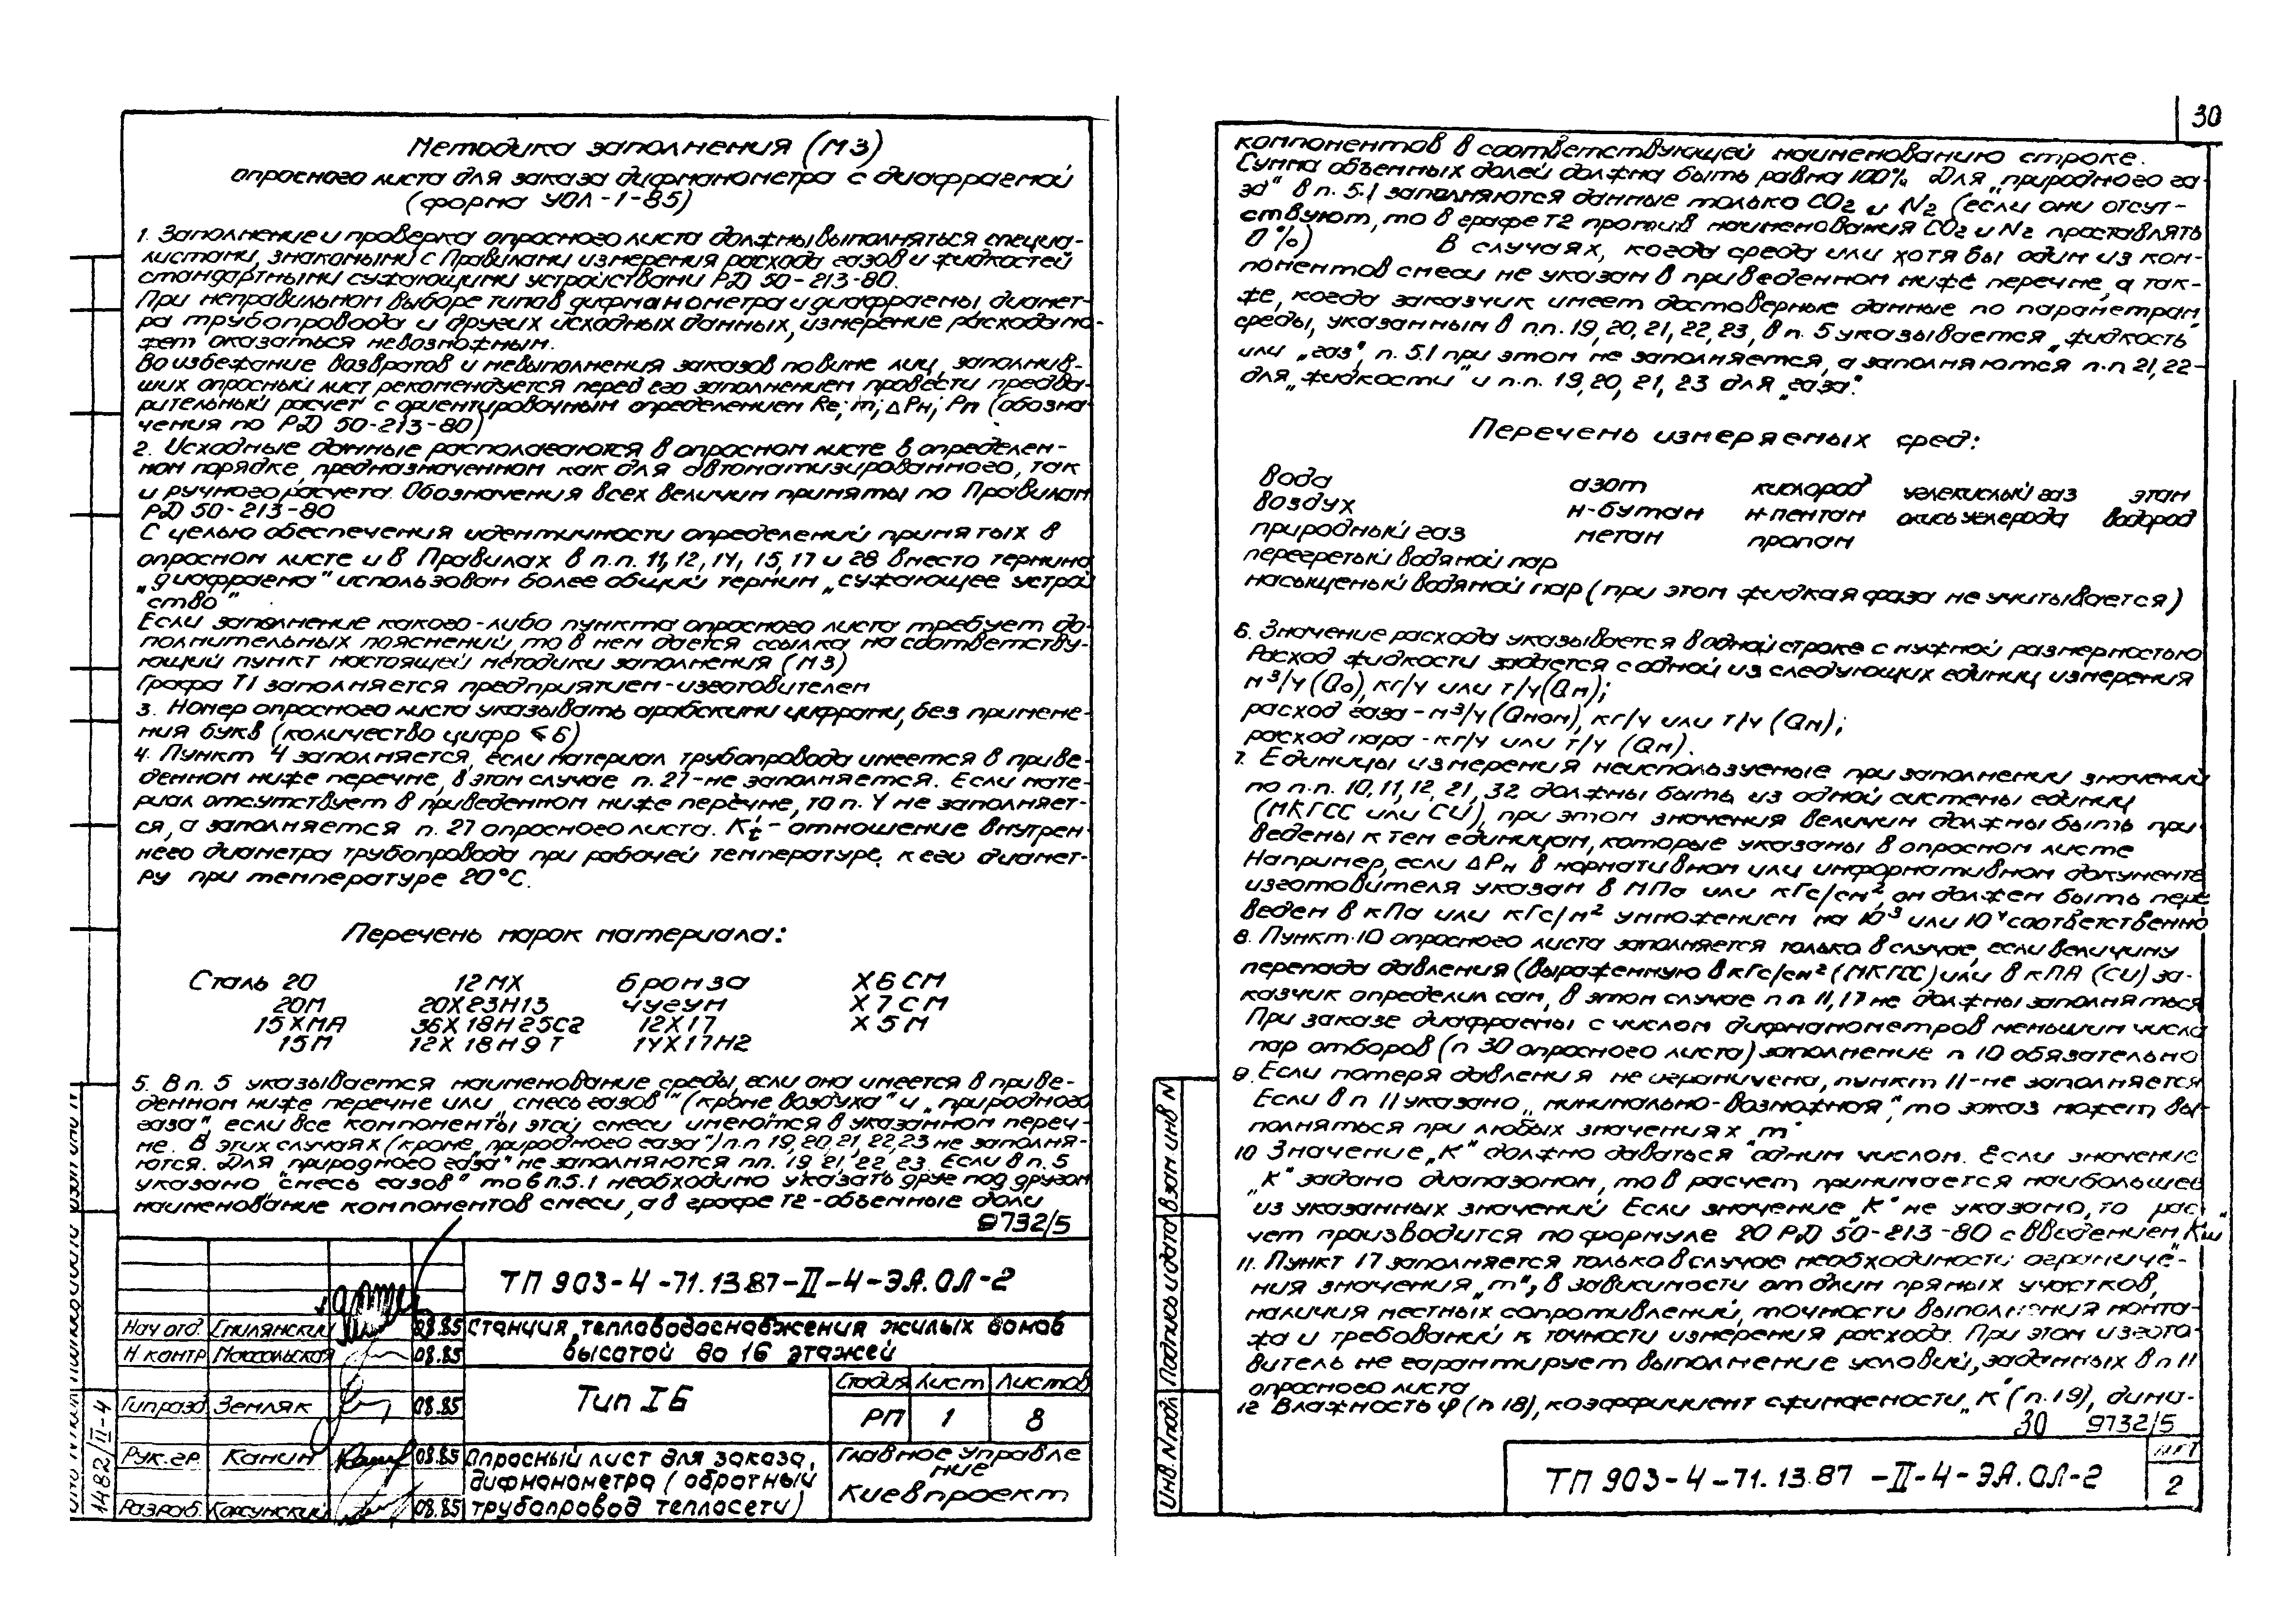 Методика заполнения (МЗ)
опросного листа для заказа дифманометра с диафрагмой
(форма УОЛ-1-85)
1. Заполнение и проверка опросного листа должны выполняться специа-
листами, знакомыми с Правилами измерения расхода газов и жидкостей
стандартными сужающими устройствами РД 50-213-80.
При неправильном выборе типов дифманометра и диафрагмы, диамет-
ра трубопровода и других исходных данных, измерение расхода мо-
жет оказаться невозможным.
Во избежание возвратов и невыполнения заказов по вине лиц, заполнив-
ших опросный лист рекомендуется перед его заполнением провести предва-
рительный расчет с ориентировочным определением Re; m; ΔPн; Рп (обозна-
чения по РД 50-213-80)
2. Исходные данные располагаются в опросном листе в определен-
ном порядке, предназначенном как для автоматизированного, так
и ручного расчета. Обозначения всех величин приняты по Правилам
РД 50-213-80
С целью обеспечения идентичности определений принятых в
опросном листе и в Правилах в п.п. 11, 12, 14, 15, 17 и 28 вместо термина
„диафрагма" использован более общий термин „сужающее устрой
ство"
Если заполнение какого-либо пункта опросного листа требует до-
полнительных пояснений, то в нем дается ссылка на соответству-
ющий пункт настоящей методики заполнения (МЗ)
Графа Т1 заполняется предприятием-изготовителем
3. Номер опросного листа указывать арабскими цифрами, без примене-
ния букв (количество цифр ⩽ 6)
4. Пункт 4 заполняется, если материал трубопровода имеется в приве-
денном ниже перечне, в этом случае п. 27-не заполняется. Если мате-
риал отсутствует в приведенном ниже перечне, то п. 4 не заполняет-
ся, а заполняется п. 27 опросного листа. K't - отношение внутрен-
него диаметра трубопровода при рабочей температуре, к его диамет-
ру при температуре 20°С.
Перечень марок материала:
Сталь 20 12МХ бронза Х6СМ
20М 20Х23Н13 чугун Х7СМ
15ХМА 36Х18Н25С2 12Х17 Х5М
15М 12Х18Н9Т 14Х17Н2
5. В п. 5 указывается наименование среды, если она имеется в приве-
денном ниже перечне или „смесь газов" (кроме воздуха" и „природного
газа", если все компоненты этой смеси имеются в указанном переч-
не. В этих случаях (кроме „природного газа") п.п 19, 20, 21, 22, 23 не заполня-
ются. Для „природного газа" не заполняются пп. 19 21, 22, 23. Если в п. 5
указано "смесь газов" то в п. 5.1 необходимо указать друг под другом
наименование компонентов смеси, а в графе Т2-объемные доли
9732/5
ТП 903-4-71.13.87-II-4-ЭА.ОЛ-2
Нач отд. Смилянский 08.85
Станция тепловодоснабжения жилых домов
высотой до 16 этажей
Н. контр 08.85
Тип I Б
Стадия Лист Листов
РП 1 8
Гип разд. Земляк 08.85
Рук. гр. Канин 08.85
Разраб. Корсунский 08.85
Опросный лист для заказа,
дифманометра (обратный
трубопровод теплосети)
Главное управле
ние
Киевпроект
1482/II-4
30
компонентов в соответствующей наименованию строке.
Сумма объемных долей должна быть равна 100%. Для „природного га-
за" в п. 5.1 заполняются данные только СО2 и N2 (если они отсут-
ствуют, то в графе Т2 против наименования СО2 и N2 проставлять
0%) В случаях, когда среда или хотя бы один из ком-
понентов смеси не указан в приведенном ниже перечне, а так-
же, когда заказчик имеет достоверные данные по параметрам
среды, указанным в п.п. 19, 20, 21, 22, 23, в п. 5 указывается „жидкость"
или „газ", п. 5.1 при этом не заполняется, а заполняются п.п 21, 22-
для „жидкости" и п.п. 19, 20, 21, 23 для „газа".
Перечень измеряемых сред:
вода азот кислород углекислый газ этан
воздух н-бутан н-пентан окись углерода водород
природный газ метан пропан
перегретый водяной пар
насыщеный водяной пар (при этом жидкая фаза не учитывается)
6. Значение расхода указывается в одной строке с нужной размерностью
Расход жидкости задается с одной из следующих единиц измерения
м³/ч (Qо), кг/ч или т/ч (Qм);
расход газа - м³/ч (Qном), кг/ч или т/ч (Qм);
расход пара - кг/ч или т/ч (Qм).
7. Единицы измерения неиспользуемые при заполнении значений
по п.п. 10, 11, 12, 21, 32 должны быть из одной системы единиц
(МКГСС или СИ), при этом значения величин должны быть при-
ведены к тем единицам, которые указаны в опросном листе
Например, если ΔPн в нормативном или информативном документе
изготовителя указан в МПа или кГс/см², он должен быть пере
веден в кПа или кГс/м² умножением на 10³ или 10⁴ соответственно
8. Пункт 10 опросного листа заполняется только в случае, если величину
перепада давления (выраженную в кГс/см² (МКГСС) или в кПА (СИ) за-
казчик определил сам, в этом случае п п 11, 17 не должны заполняться
При заказе диафрагмы с числом дифманометров меньшим числа
пар отборов (п 30 опросного листа) заполнение п 10 обязательно
9. Если потеря давления не ограничена, пункт 11-не заполняется
Если в п 11 указано „минимально-возможная", то заказ может вы-
полняться при любых значениях m"
10 Значение „К" должно даваться одним числом. Если значение
„К" задано диапазоном, то в расчет принимается наибольшее
из указанных значений Если значение „К" не указано, то рас-
чет производится по формуле 20 РД 50-213-80 с введением „Кш"
11. Пункт 17 заполняется только в случае необходимости ограниче-
ния значения „m", в зависимости от длин прямых участков,
наличия местных сопротивлений, точности выполнения монта-
жа и требований к точности измерения расхода. При этом изгото-
витель не гарантирует выполнение условий, заданных в п 11
опросного листа
12 Влажность φ (п 18), коэффициент сжимаемости „К" (п. 19), дина-
30 9732/5
ТП 903-4-71.13.87-II-4-ЭА.ОЛ-2
лист
2
Инв. N подл Подпись и дата Взам инв N